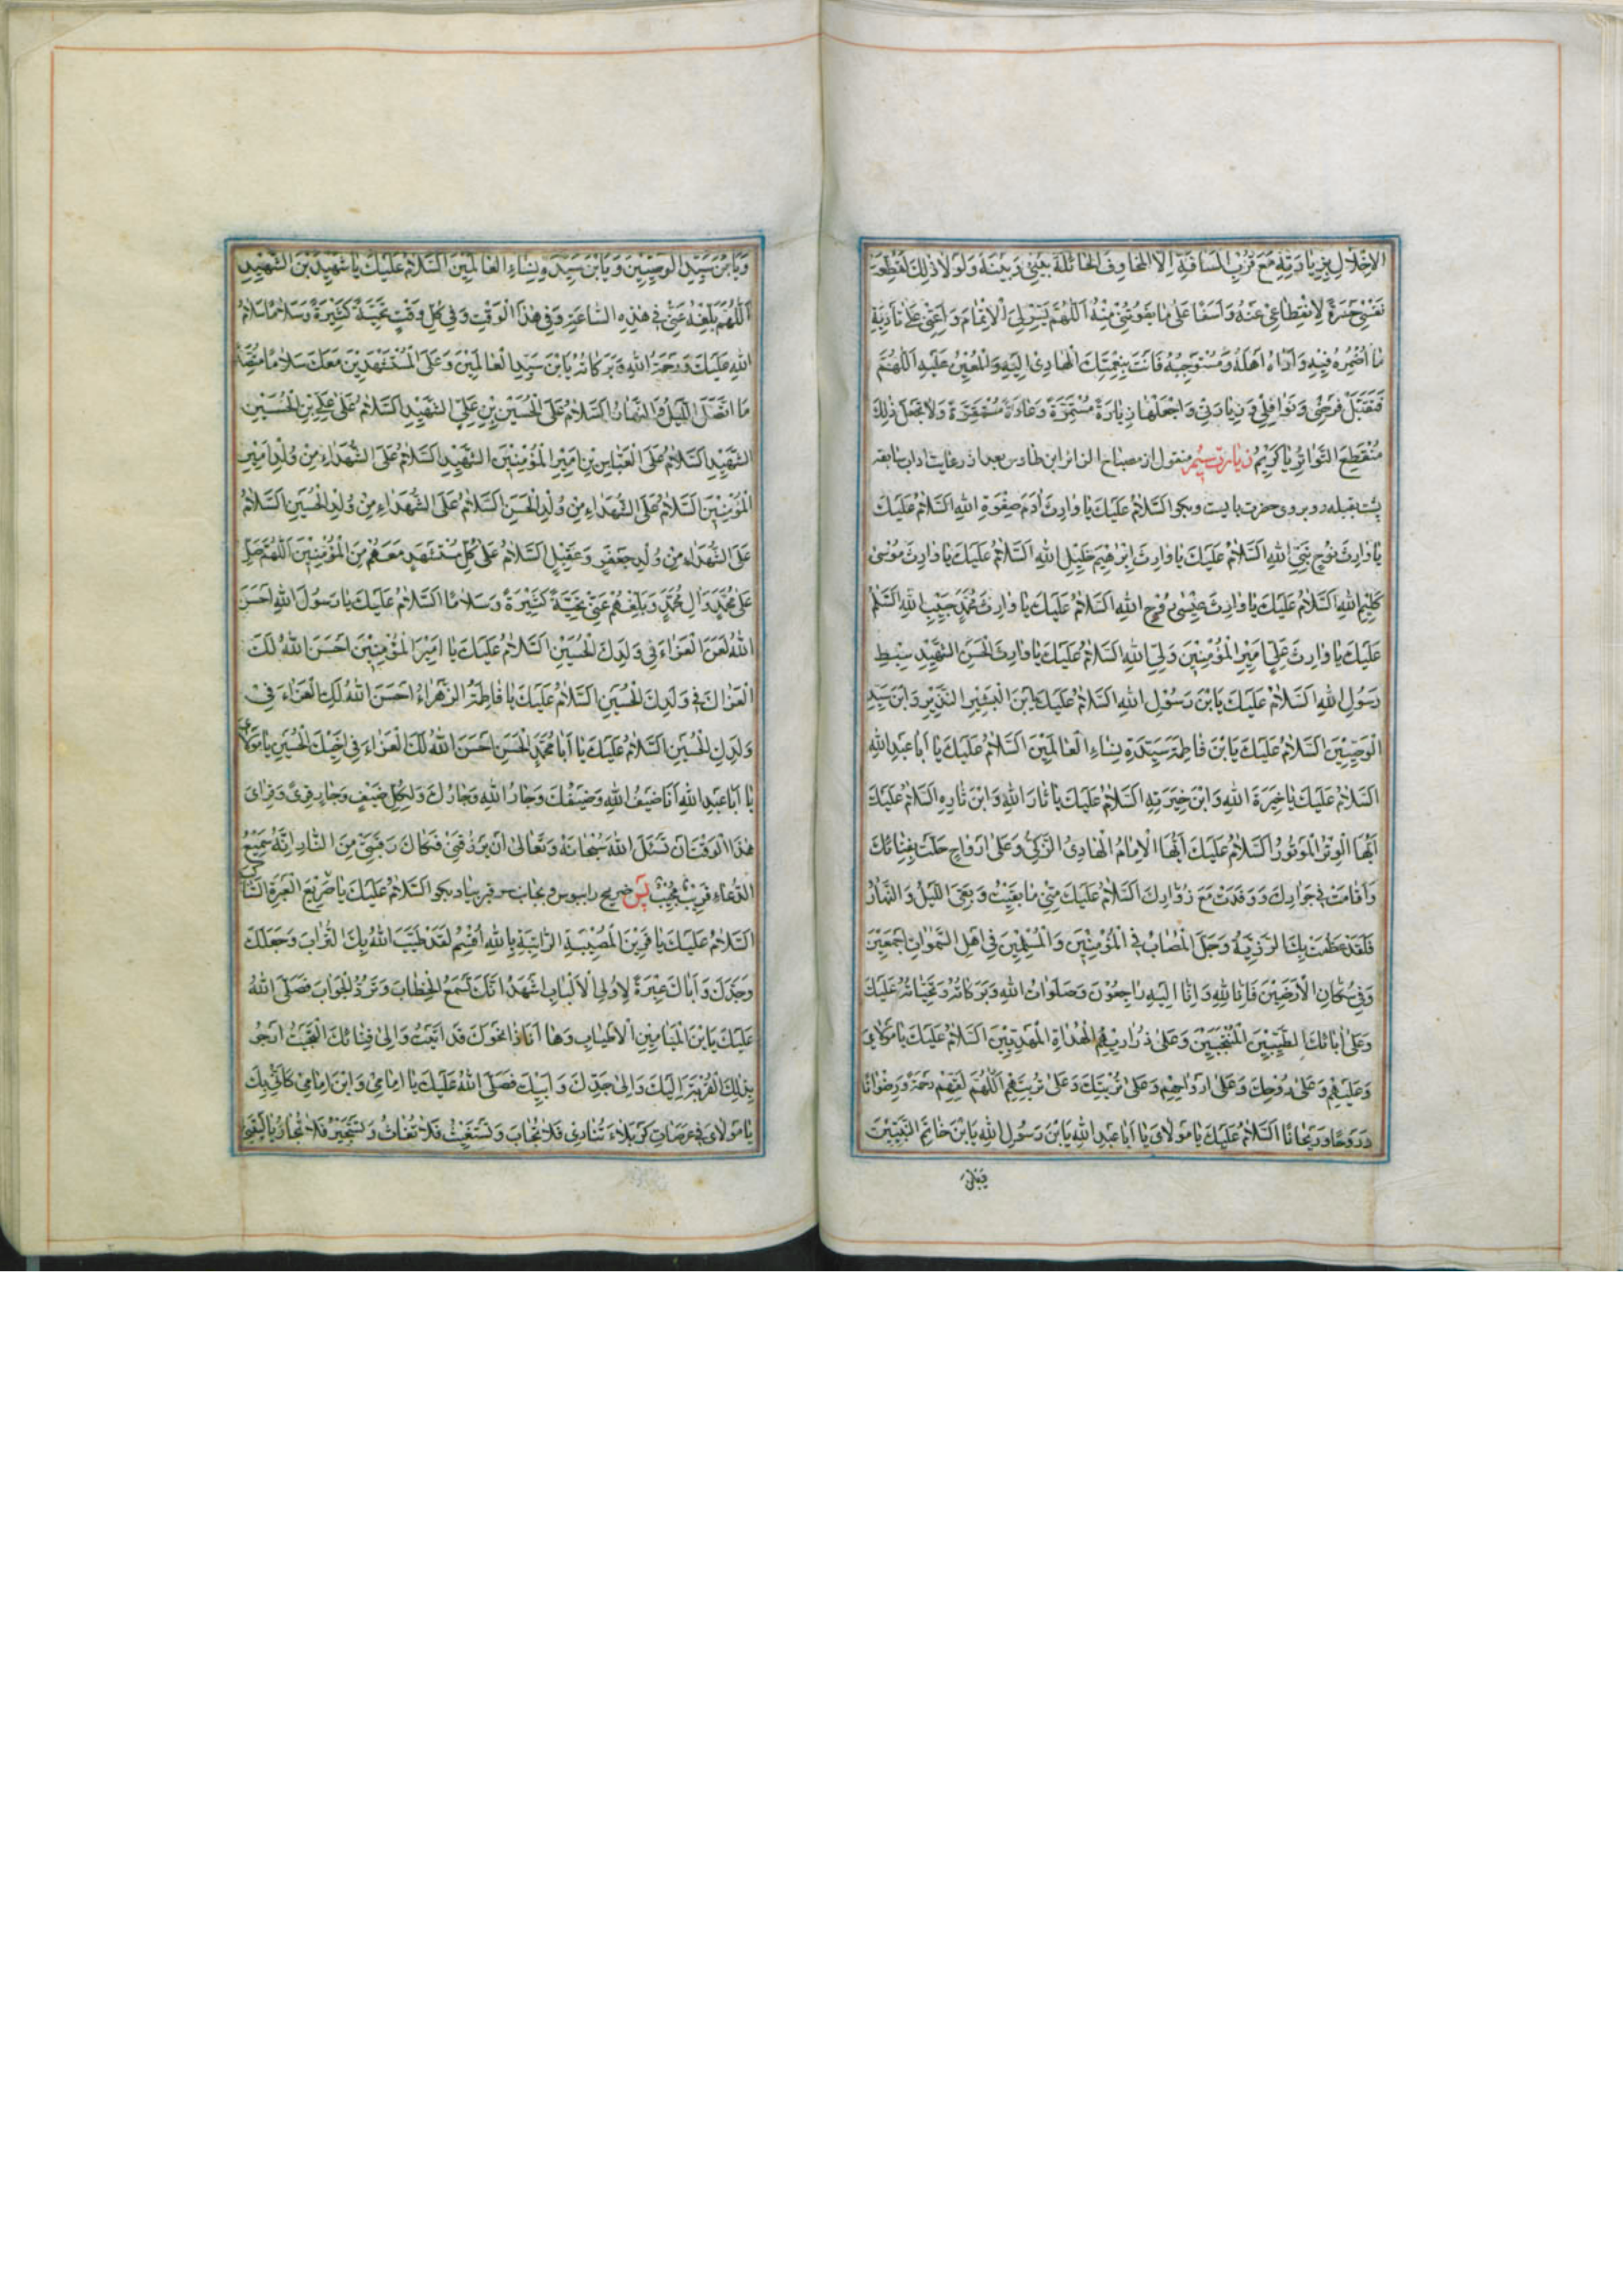 الاِخْلالِ بِزِيارَتِهِ مَعَ قُرْبِ الْمَسافَةِ اِلَّا الْمَخاوِفُ الْحائِلَةُ بَيْنِي وَبَيْنَهُ وَلَوْلا ذٰلِكَ لَتَقَطَّعَتْ
نَفْسِي حَسْرَةً لِانْقِطاعِي عَنْهُ وَاَسَفًا عَلىٰ ما يَفُوتُنِي مِنْهُ اَللّٰهُمَّ يَسِّرْ لِيَ الْاِتْمامَ وَاَعِنِّي عَلىٰ تَأدِيَةِ
ما اُضْمِرُهُ فِيهِ وَاَراهُ اَهْلَهُ وَمُسْتَوْجِبَهُ فَاَنْتَ بِنِعْمَتِكَ الْهادِي اِلَيْهِ وَالْمُعِينُ عَلَيْهِ اَللّٰهُمَّ
فَتَقَبَّلْ فَرْضِي وَنَوافِلِي وَزِيارَتِي وَاجْعَلْها زِيارَةً مُسْتَمِرَّةً وَعادَةً مُسْتَقِرَّةً وَلا تَجْعَلْ ذٰلِكَ
مُنْقَطِعَ التَّواتُرِ يا كَرِيمُ زيارت سيم منقول از مصباح الزائر ابن طاوس بعد از رعايت اداب سابقه
پشت بقبله رو بروى حضرت بايست وبكو اَلسَّلامُ عَلَيْكَ يا وارِثَ اٰدَمَ صِفْوَةِ اللهِ اَلسَّلامُ عَلَيْكَ
يا وارِثَ نُوحٍ نَبِيِّ اللهِ اَلسَّلامُ عَلَيْكَ يا وارِثَ اِبْرٰهِيمَ خَلِيلِ اللهِ اَلسَّلامُ عَلَيْكَ يا وارِثَ مُوسىٰ
كَلِيمِ اللهِ اَلسَّلامُ عَلَيْكَ يا وارِثَ عِيسىٰ رُوحِ اللهِ اَلسَّلامُ عَلَيْكَ يا وارِثَ مُحَمَّدٍ حَبِيبِ اللهِ اَلسَّلامُ
عَلَيْكَ يا وارِثَ عَلِيٍّ اَمِيرِ الْمُؤْمِنِينَ وَلِيِّ اللهِ اَلسَّلامُ عَلَيْكَ يا وارِثَ الْحَسَنِ الشَّهِيدِ سِبْطِ
رَسُولِ اللهِ اَلسَّلامُ عَلَيْكَ يَابْنَ رَسُولِ اللهِ اَلسَّلامُ عَلَيْكَ يَابْنَ الْبَشِيرِ النَّذِيرِ وَابْنَ سَيِّدِ
الْوَصِيِّينَ اَلسَّلامُ عَلَيْكَ يَابْنَ فاطِمَةَ سَيِّدَةِ نِساءِ الْعالَمِينَ اَلسَّلامُ عَلَيْكَ يا اَبا عَبْدِ اللهِ
اَلسَّلامُ عَلَيْكَ يا خِيَرَةَ اللهِ وَابْنَ خِيَرَتِهِ اَلسَّلامُ عَلَيْكَ يا ثارَ اللهِ وَابْنَ ثارِهِ اَلسَّلامُ عَلَيْكَ
اَيُّهَا الْوِتْرُ الْمَوْتُورُ اَلسَّلامُ عَلَيْكَ اَيُّهَا الْاِمامُ الْهادِي الزَّكِيُّ وَعَلىٰ اَرْواحٍ حَلَّتْ بِفِنائِكَ
وَاَقامَتْ فِي جِوارِكَ وَوَفَدَتْ مَعَ زُوّارِكَ اَلسَّلامُ عَلَيْكَ مِنِّي ما بَقِيتُ وَبَقِيَ اللَّيْلُ وَالنَّهارُ
فَلَقَدْ عَظُمَتْ بِكَ الرَّزِيَّةُ وَجَلَّ الْمُصابُ فِي الْمُؤْمِنِينَ وَالْمُسْلِمِينَ وَفِي اَهْلِ السَّمٰواتِ اَجْمَعِينَ
وَفِي سُكّانِ الْاَرَضِينَ فَاِنّا لِلّٰهِ وَاِنّا اِلَيْهِ راجِعُونَ وَصَلَواتُ اللهِ وَبَرَكاتُهُ وَتَحِيّاتُهُ عَلَيْكَ
وَعَلىٰ اٰبائِكَ الطَّيِّبِينَ الْمُنْتَجَبِينَ وَعَلىٰ ذَرارِيهِمُ الْهُداةِ الْمَهْدِيِّينَ اَلسَّلامُ عَلَيْكَ يا مَوْلايَ
وَعَلَيْهِمْ وَعَلىٰ رُوحِكَ وَعَلىٰ اَرْواحِهِمْ وَعَلىٰ تُرْبَتِكَ وَعَلىٰ تُرْبَتِهِمْ اَللّٰهُمَّ لَقِّهِمْ رَحْمَةً وَرِضْوانًا
وَرَوْحًا وَرَيْحانًا اَلسَّلامُ عَلَيْكَ يا مَوْلايَ يا اَبا عَبْدِ اللهِ يَابْنَ رَسُولِ اللهِ يَابْنَ خاتَمِ النَّبِيِّينَ
وَيَابْنَ سَيِّدِ الْوَصِيِّينَ وَيَابْنَ سَيِّدَةِ نِساءِ الْعالَمِينَ اَلسَّلامُ عَلَيْكَ يا شَهِيدَ بْنَ الشَّهِيدِ
اَللّٰهُمَّ بَلِّغْهُ عَنِّي فِي هٰذِهِ السّاعَةِ وَفِي هٰذَا الْوَقْتِ وَفِي كُلِّ وَقْتٍ تَحِيَّةً كَثِيرَةً وَسَلامًا سَلامُ
اللهِ عَلَيْكَ وَرَحْمَةُ اللهِ وَبَرَكاتُهُ يَابْنَ سَيِّدِ الْعالَمِينَ وَعَلَى الْمُسْتَشْهَدِينَ مَعَكَ سَلامًا مُتَّصِلًا
مَا اتَّصَلَ اللَّيْلُ وَالنَّهارُ اَلسَّلامُ عَلَى الْحُسَيْنِ بْنِ عَلِيٍّ الشَّهِيدِ اَلسَّلامُ عَلىٰ عَلِيِّ بْنِ الْحُسَيْنِ
الشَّهِيدِ اَلسَّلامُ عَلَى الْعَبّاسِ بْنِ اَمِيرِ الْمُؤْمِنِينَ الشَّهِيدِ اَلسَّلامُ عَلَى الشُّهَداءِ مِنْ وُلْدِ اَمِيرِ
الْمُؤْمِنِينَ اَلسَّلامُ عَلَى الشُّهَداءِ مِنْ وُلْدِ الْحَسَنِ اَلسَّلامُ عَلَى الشُّهَداءِ مِنْ وُلْدِ الْحُسَيْنِ اَلسَّلامُ
عَلَى الشُّهَداءِ مِنْ وُلْدِ جَعْفَرٍ وَعَقِيلٍ اَلسَّلامُ عَلىٰ كُلِّ مُسْتَشْهَدٍ مَعَهُمْ مِنَ الْمُؤْمِنِينَ اَللّٰهُمَّ صَلِّ
عَلىٰ مُحَمَّدٍ وَاٰلِ مُحَمَّدٍ وَبَلِّغْهُمْ عَنِّي تَحِيَّةً كَثِيرَةً وَسَلامًا اَلسَّلامُ عَلَيْكَ يا رَسُولَ اللهِ اَحْسَنَ
اللهُ لَكَ الْعَزاءَ فِي وَلَدِكَ الْحُسَيْنِ اَلسَّلامُ عَلَيْكَ يا اَمِيرَ الْمُؤْمِنِينَ اَحْسَنَ اللهُ لَكَ
الْعَزاءَ فِي وَلَدِكَ الْحُسَيْنِ اَلسَّلامُ عَلَيْكِ يا فاطِمَةُ الزَّهْراءُ اَحْسَنَ اللهُ لَكِ الْعَزاءَ فِي
وَلَدِكِ الْحُسَيْنِ اَلسَّلامُ عَلَيْكَ يا اَبا مُحَمَّدٍ الْحَسَنِ اَحْسَنَ اللهُ لَكَ الْعَزاءَ فِي اَخِيكَ الْحُسَيْنِ يا مَوْلايَ
يا اَبا عَبْدِ اللهِ اَنا ضَيْفُ اللهِ وَضَيْفُكَ وَجارُ اللهِ وَجارُكَ وَلِكُلِّ ضَيْفٍ وَجارٍ قِرىً وَقِرايَ
هٰذَا الْوَقْتَ اَنْ تَسْئَلَ اللهَ سُبْحانَهُ وَتَعالىٰ اَنْ يَرْزُقَنِي فَكاكَ رَقَبَتِي مِنَ النّارِ اِنَّهُ سَمِيعُ
الدُّعاءِ قَرِيبٌ مُجِيبٌ پس ضريح را ببوس وبجانب سر قبر بيا وبكو اَلسَّلامُ عَلَيْكَ يا صَرِيعَ الْعَبْرَةِ السّاكِبَةِ
اَلسَّلامُ عَلَيْكَ يا قَرِينَ الْمُصِيبَةِ الرّاتِبَةِ بِاللهِ اُقْسِمُ لَقَدْ طَيَّبَ اللهُ بِكَ التُّرابَ وَجَعَلَكَ
وَجَدَّكَ وَاَباكَ عِبْرَةً لِاُولِي الْاَلْبابِ اَشْهَدُ اَنَّكَ تَسْمَعُ الْخِطابَ وَتَرُدُّ الْجَوابَ فَصَلَّى اللهُ
عَلَيْكَ يَابْنَ الْمَيامِينِ الْاَطْيابِ وَها اَنَا ذا نَحْوَكَ قَدْ اَتَيْتُ وَاِلىٰ فِنائِكَ الْتَجَيْتُ اَرْجُو
بِذٰلِكَ الْقُرْبَةَ اِلَيْكَ وَاِلىٰ جَدِّكَ وَاَبِيكَ فَصَلَّى اللهُ عَلَيْكَ يا اِمامِي وَابْنَ اِمامِي كَاَنِّي بِكَ
يا مَوْلايَ فِي عَرَصاتِ كَرْبَلاءَ تُنادِي فَلا تُجابُ وَتَسْتَغِيثُ فَلا تُغاثُ وَتَسْتَجِيرُ فَلا تُجارُ يا لَيْتَنِي